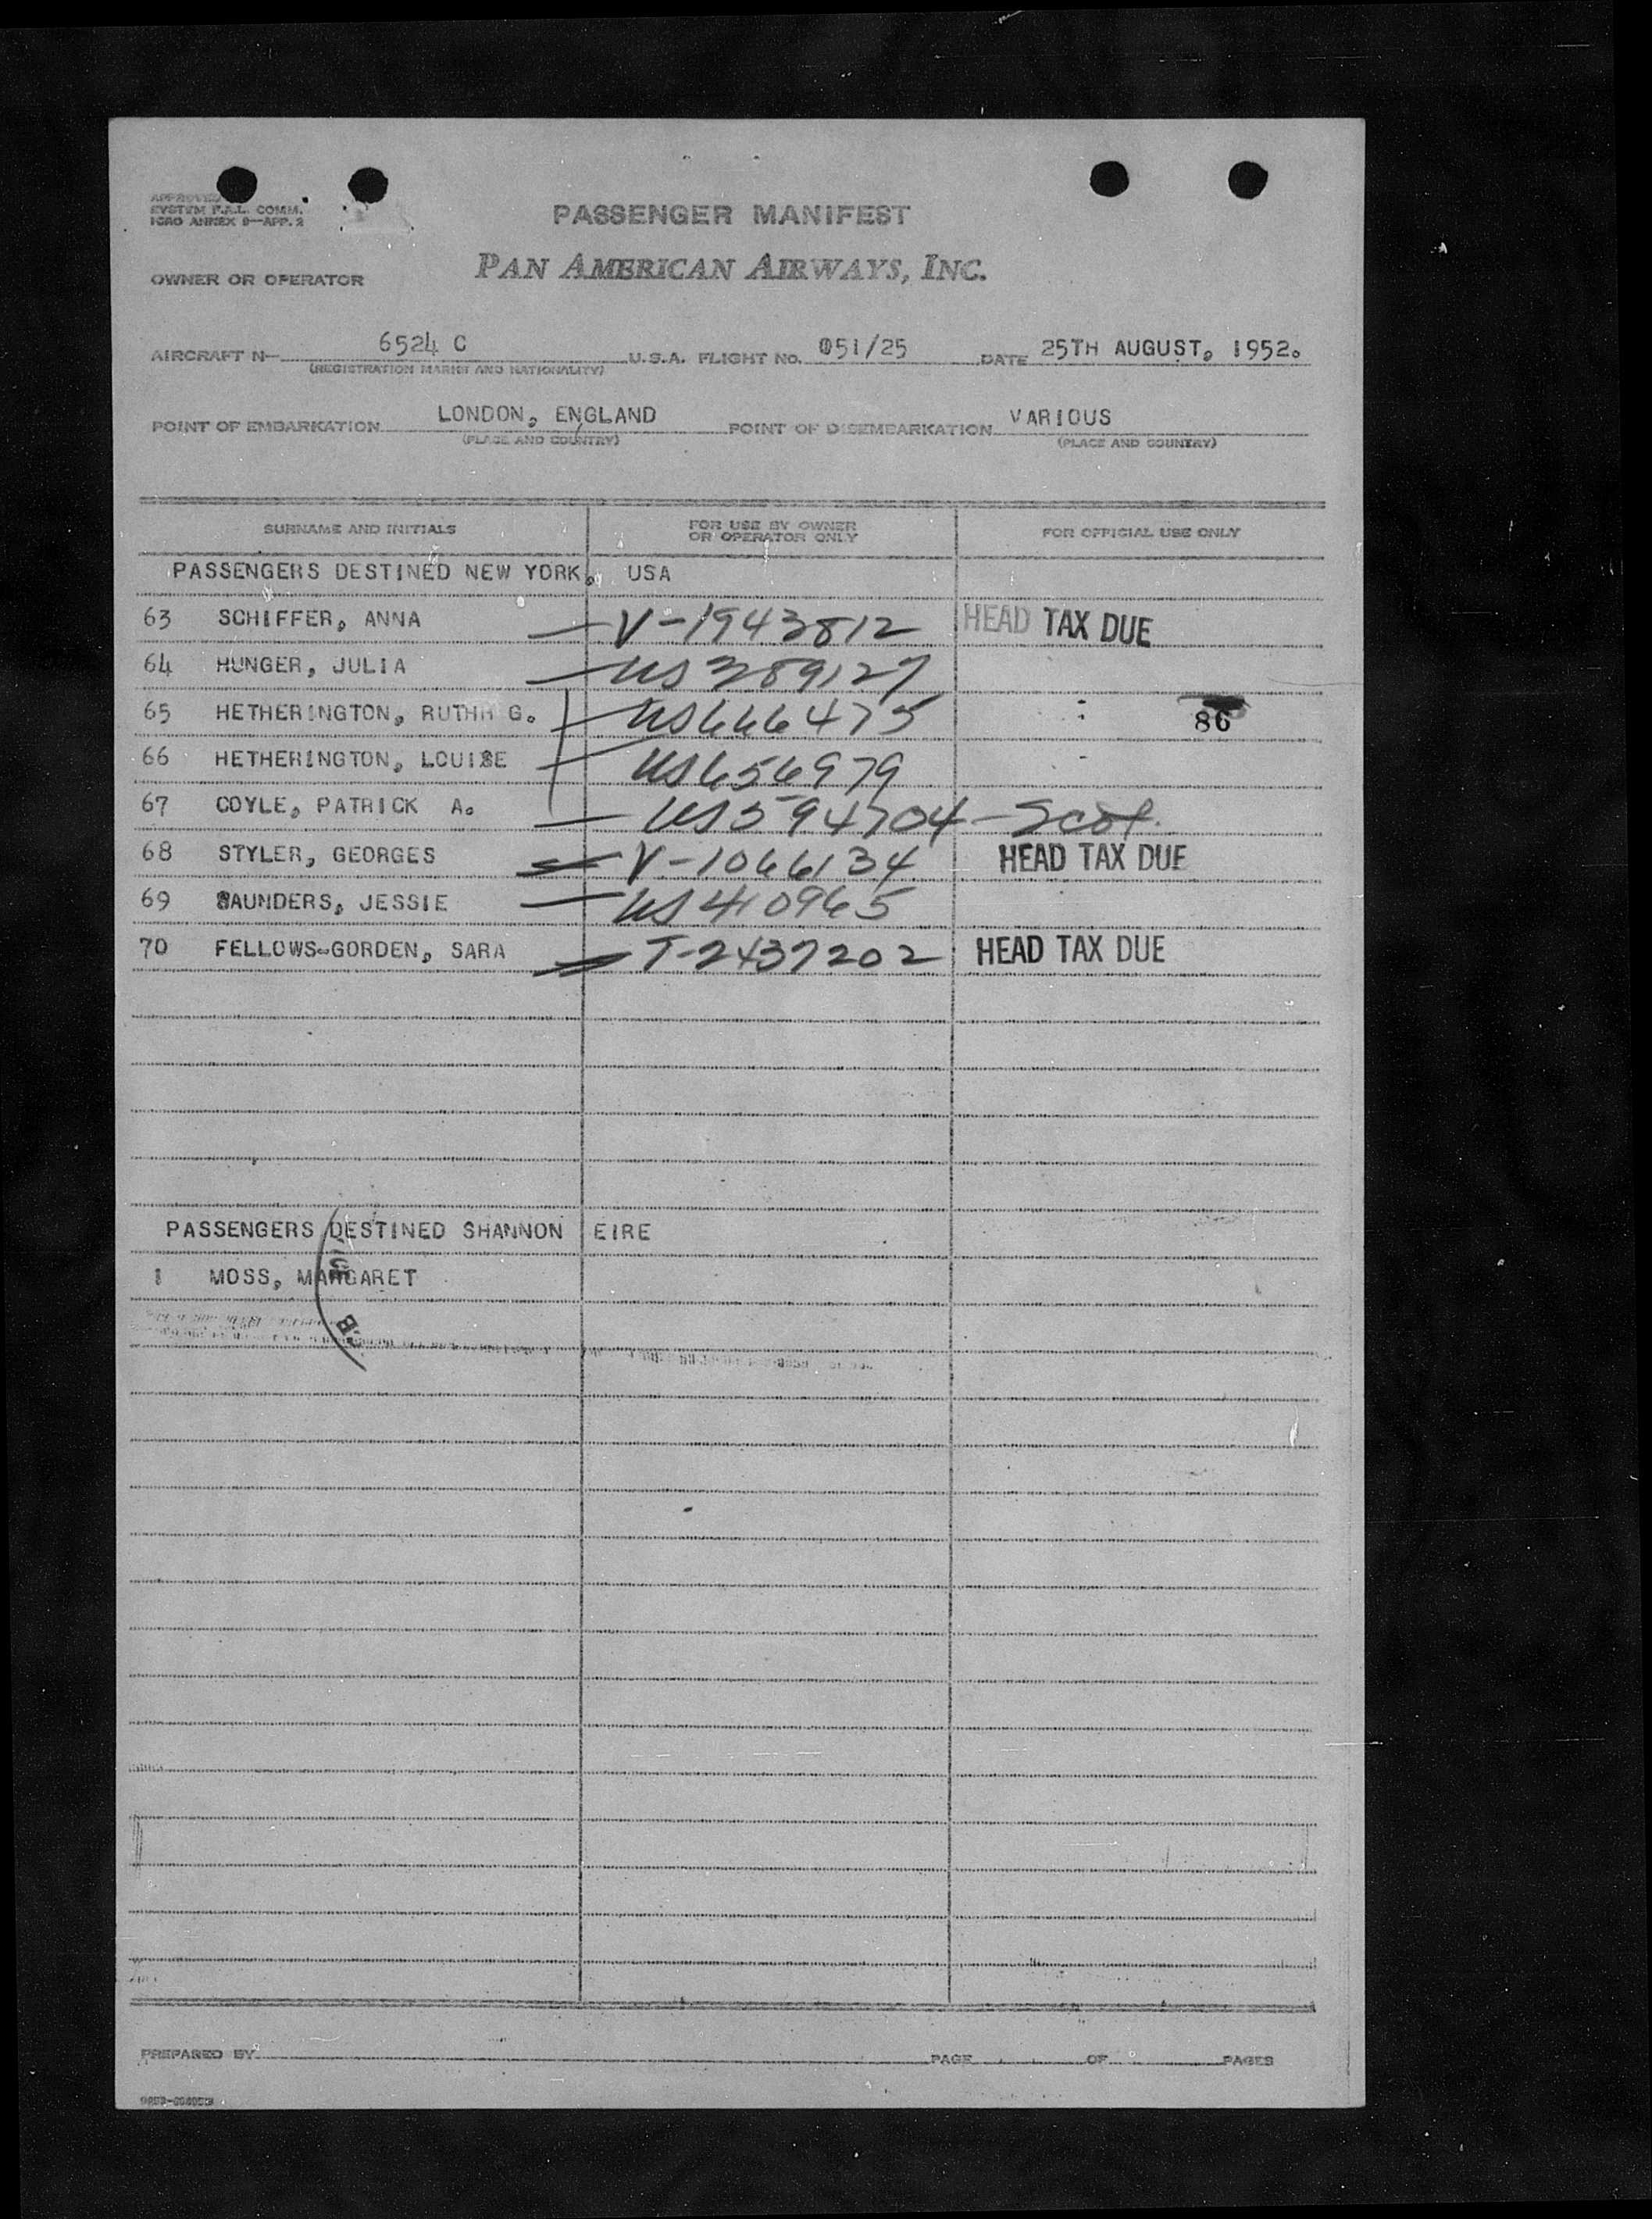 APPROVED
SYSTEM F.A.L. COMM.
ICAO ANNEX 9—APP. 2
PASSENGER MANIFEST
OWNER OR OPERATOR PAN AMERICAN AIRWAYS, INC.
AIRCRAFT N— 6524 C U.S.A. FLIGHT NO. 051/25 DATE 25TH AUGUST, 1952.
(REGISTRATION MARKS AND NATIONALITY)
POINT OF EMBARKATION LONDON, ENGLAND POINT OF DISEMBARKATION VARIOUS
(PLACE AND COUNTRY) (PLACE AND COUNTRY)
SURNAME AND INITIALS FOR USE BY OWNER OR OPERATOR ONLY FOR OFFICIAL USE ONLY
PASSENGERS DESTINED NEW YORK, USA
63 SCHIFFER, ANNA — V-1943812 HEAD TAX DUE
64 HUNGER, JULIA — US 389127
65 HETHERINGTON, RUTHH G. — US 666475 86
66 HETHERINGTON, LOUISE — US 656979
67 COYLE, PATRICK A. — US 594704 — Scot.
68 STYLER, GEORGES — V-1066134 HEAD TAX DUE
69 SAUNDERS, JESSIE — US 410965
70 FELLOWS-GORDEN, SARA — T-2437202 HEAD TAX DUE
PASSENGERS DESTINED SHANNON EIRE
1 MOSS, MARGARET
PREPARED BY PAGE OF PAGES